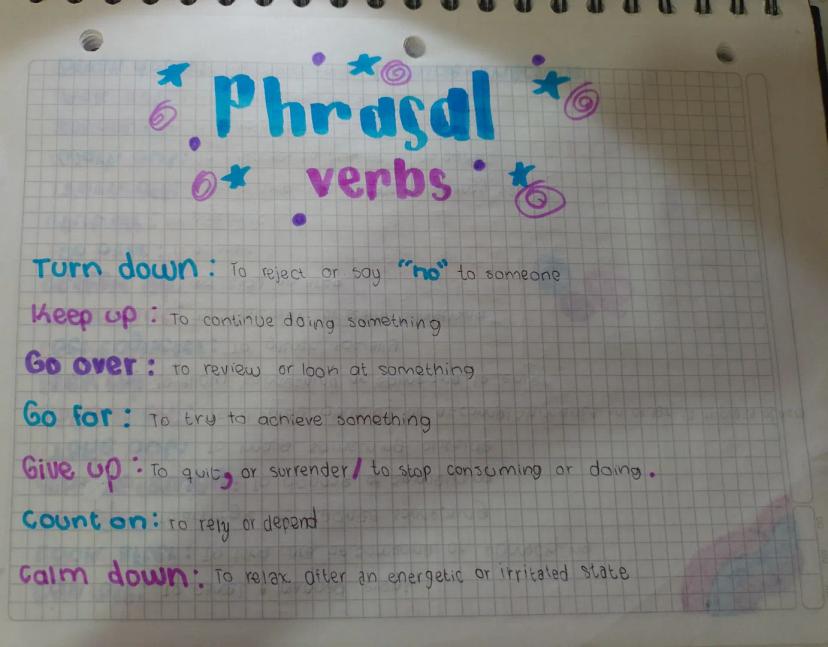 Phrasal
verbs
Turn down: To reject or say "no" to someone
Keep up: To continue doing something
Go over: To review or look at something
Go for: To try to achieve something
Give up: To quit, or surrender/ to stop consuming or doing.
Count on: To rely or depend
Calm down: To relax after an energetic or irritated state